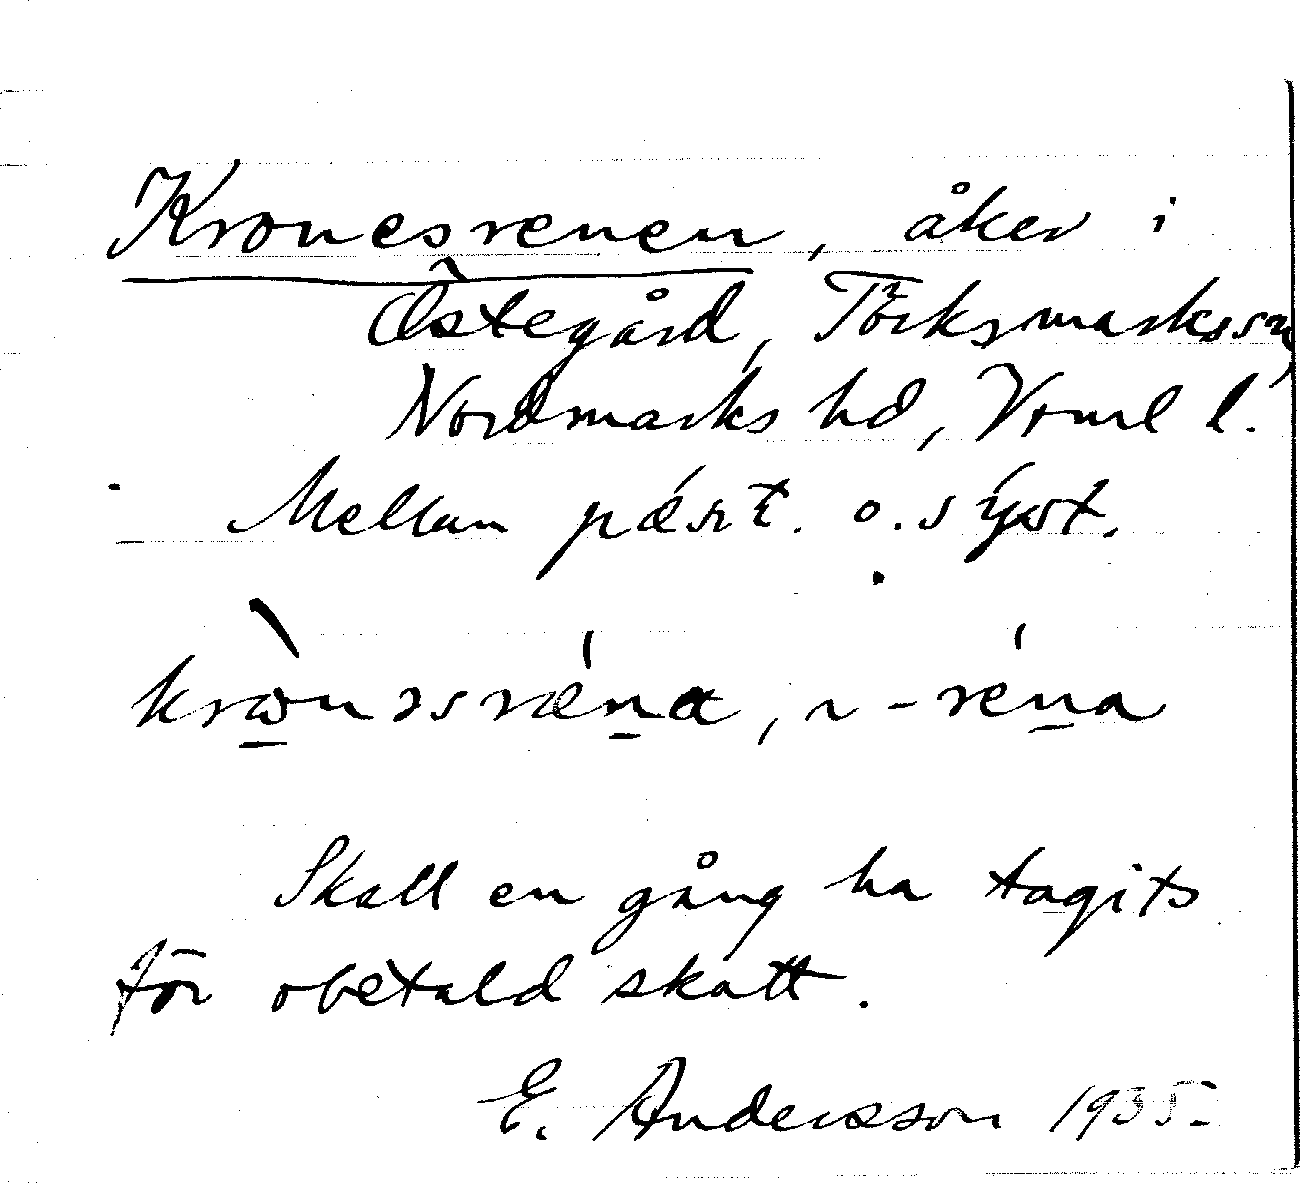 Kronesrenen, åker i
Östegård, Töcksmarks sn,
Nordmarks hd, Vrml l.
Mellan o.
kròn
Skall en gång ha tagits
för obetald skatt.
E. Andersson 1935.